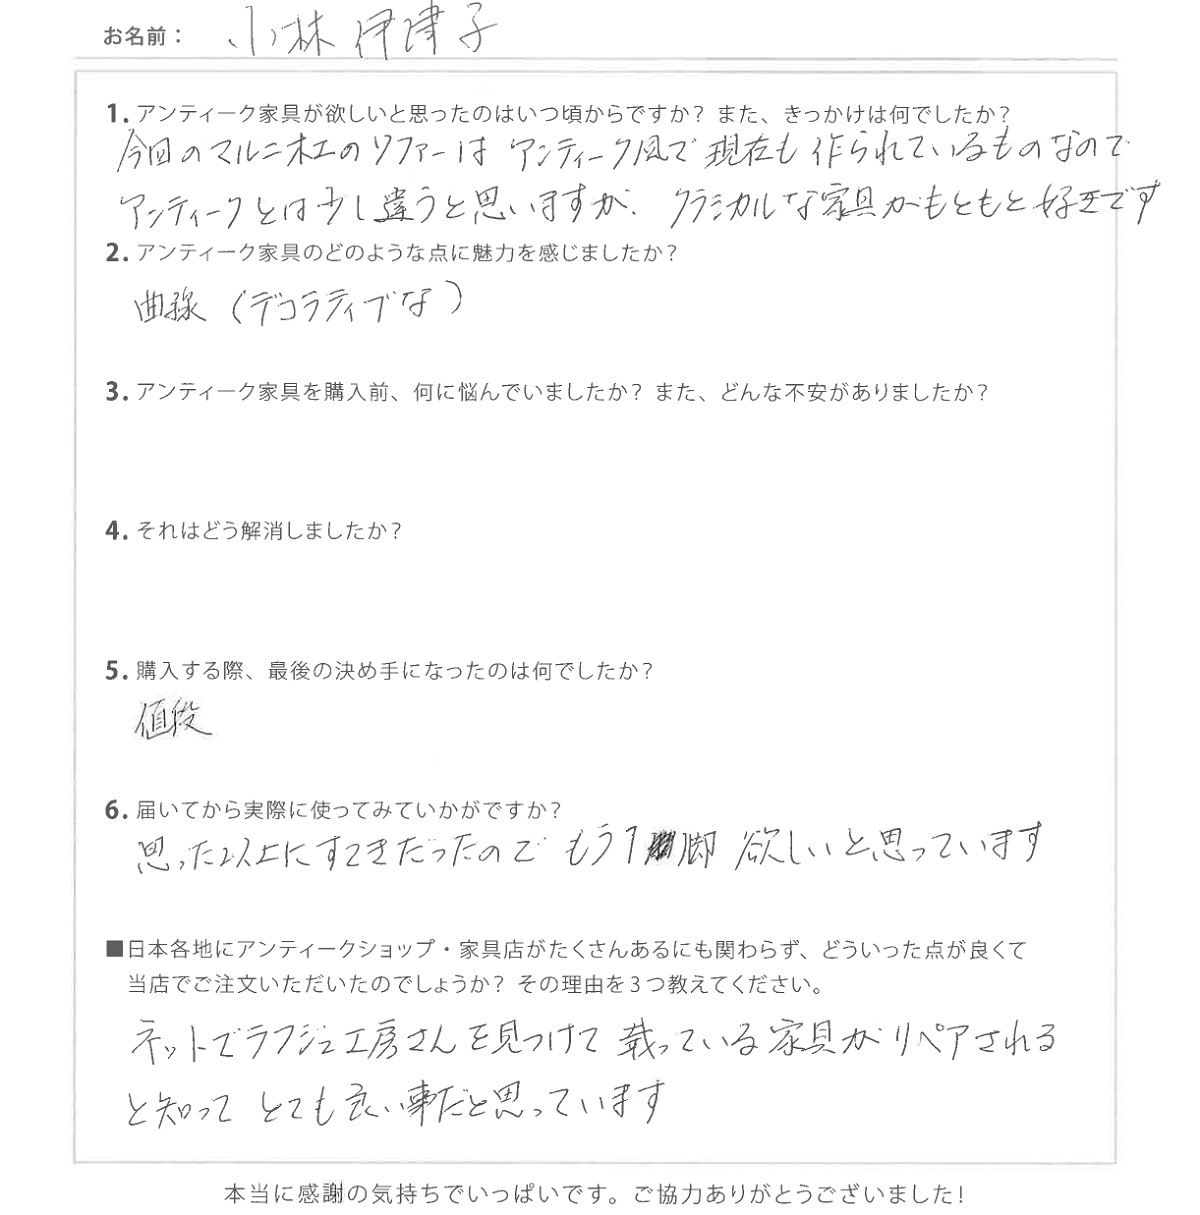 お名前： 小林 伊津子
1. アンティーク家具が欲しいと思ったのはいつ頃からですか？ また、きっかけは何でしたか？
今回のマルニ木工のソファーは アンティーク風で 現在も 作られているものなので
アンティークとは少し違うと思いますが、 クラシカルな家具がもともと好きです
2. アンティーク家具のどのような点に魅力を感じましたか？
曲線（デコラティブな）
3. アンティーク家具を購入前、何に悩んでいましたか？ また、どんな不安がありましたか？
4. それはどう解消しましたか？
5. 購入する際、最後の決め手になったのは何でしたか？
値段
6. 届いてから実際に使ってみていかがですか？
思った以上にすてきだったので もう1脚 欲しいと思っています
■日本各地にアンティークショップ・家具店がたくさんあるにも関わらず、どういった点が良くて
当店でご注文いただいたのでしょうか？ その理由を３つ教えてください。
ネットでラフジュ工房さんを見つけて 載っている家具が リペアされる
と知って とても良い事だと思っています
本当に感謝の気持ちでいっぱいです。ご協力ありがとうございました！